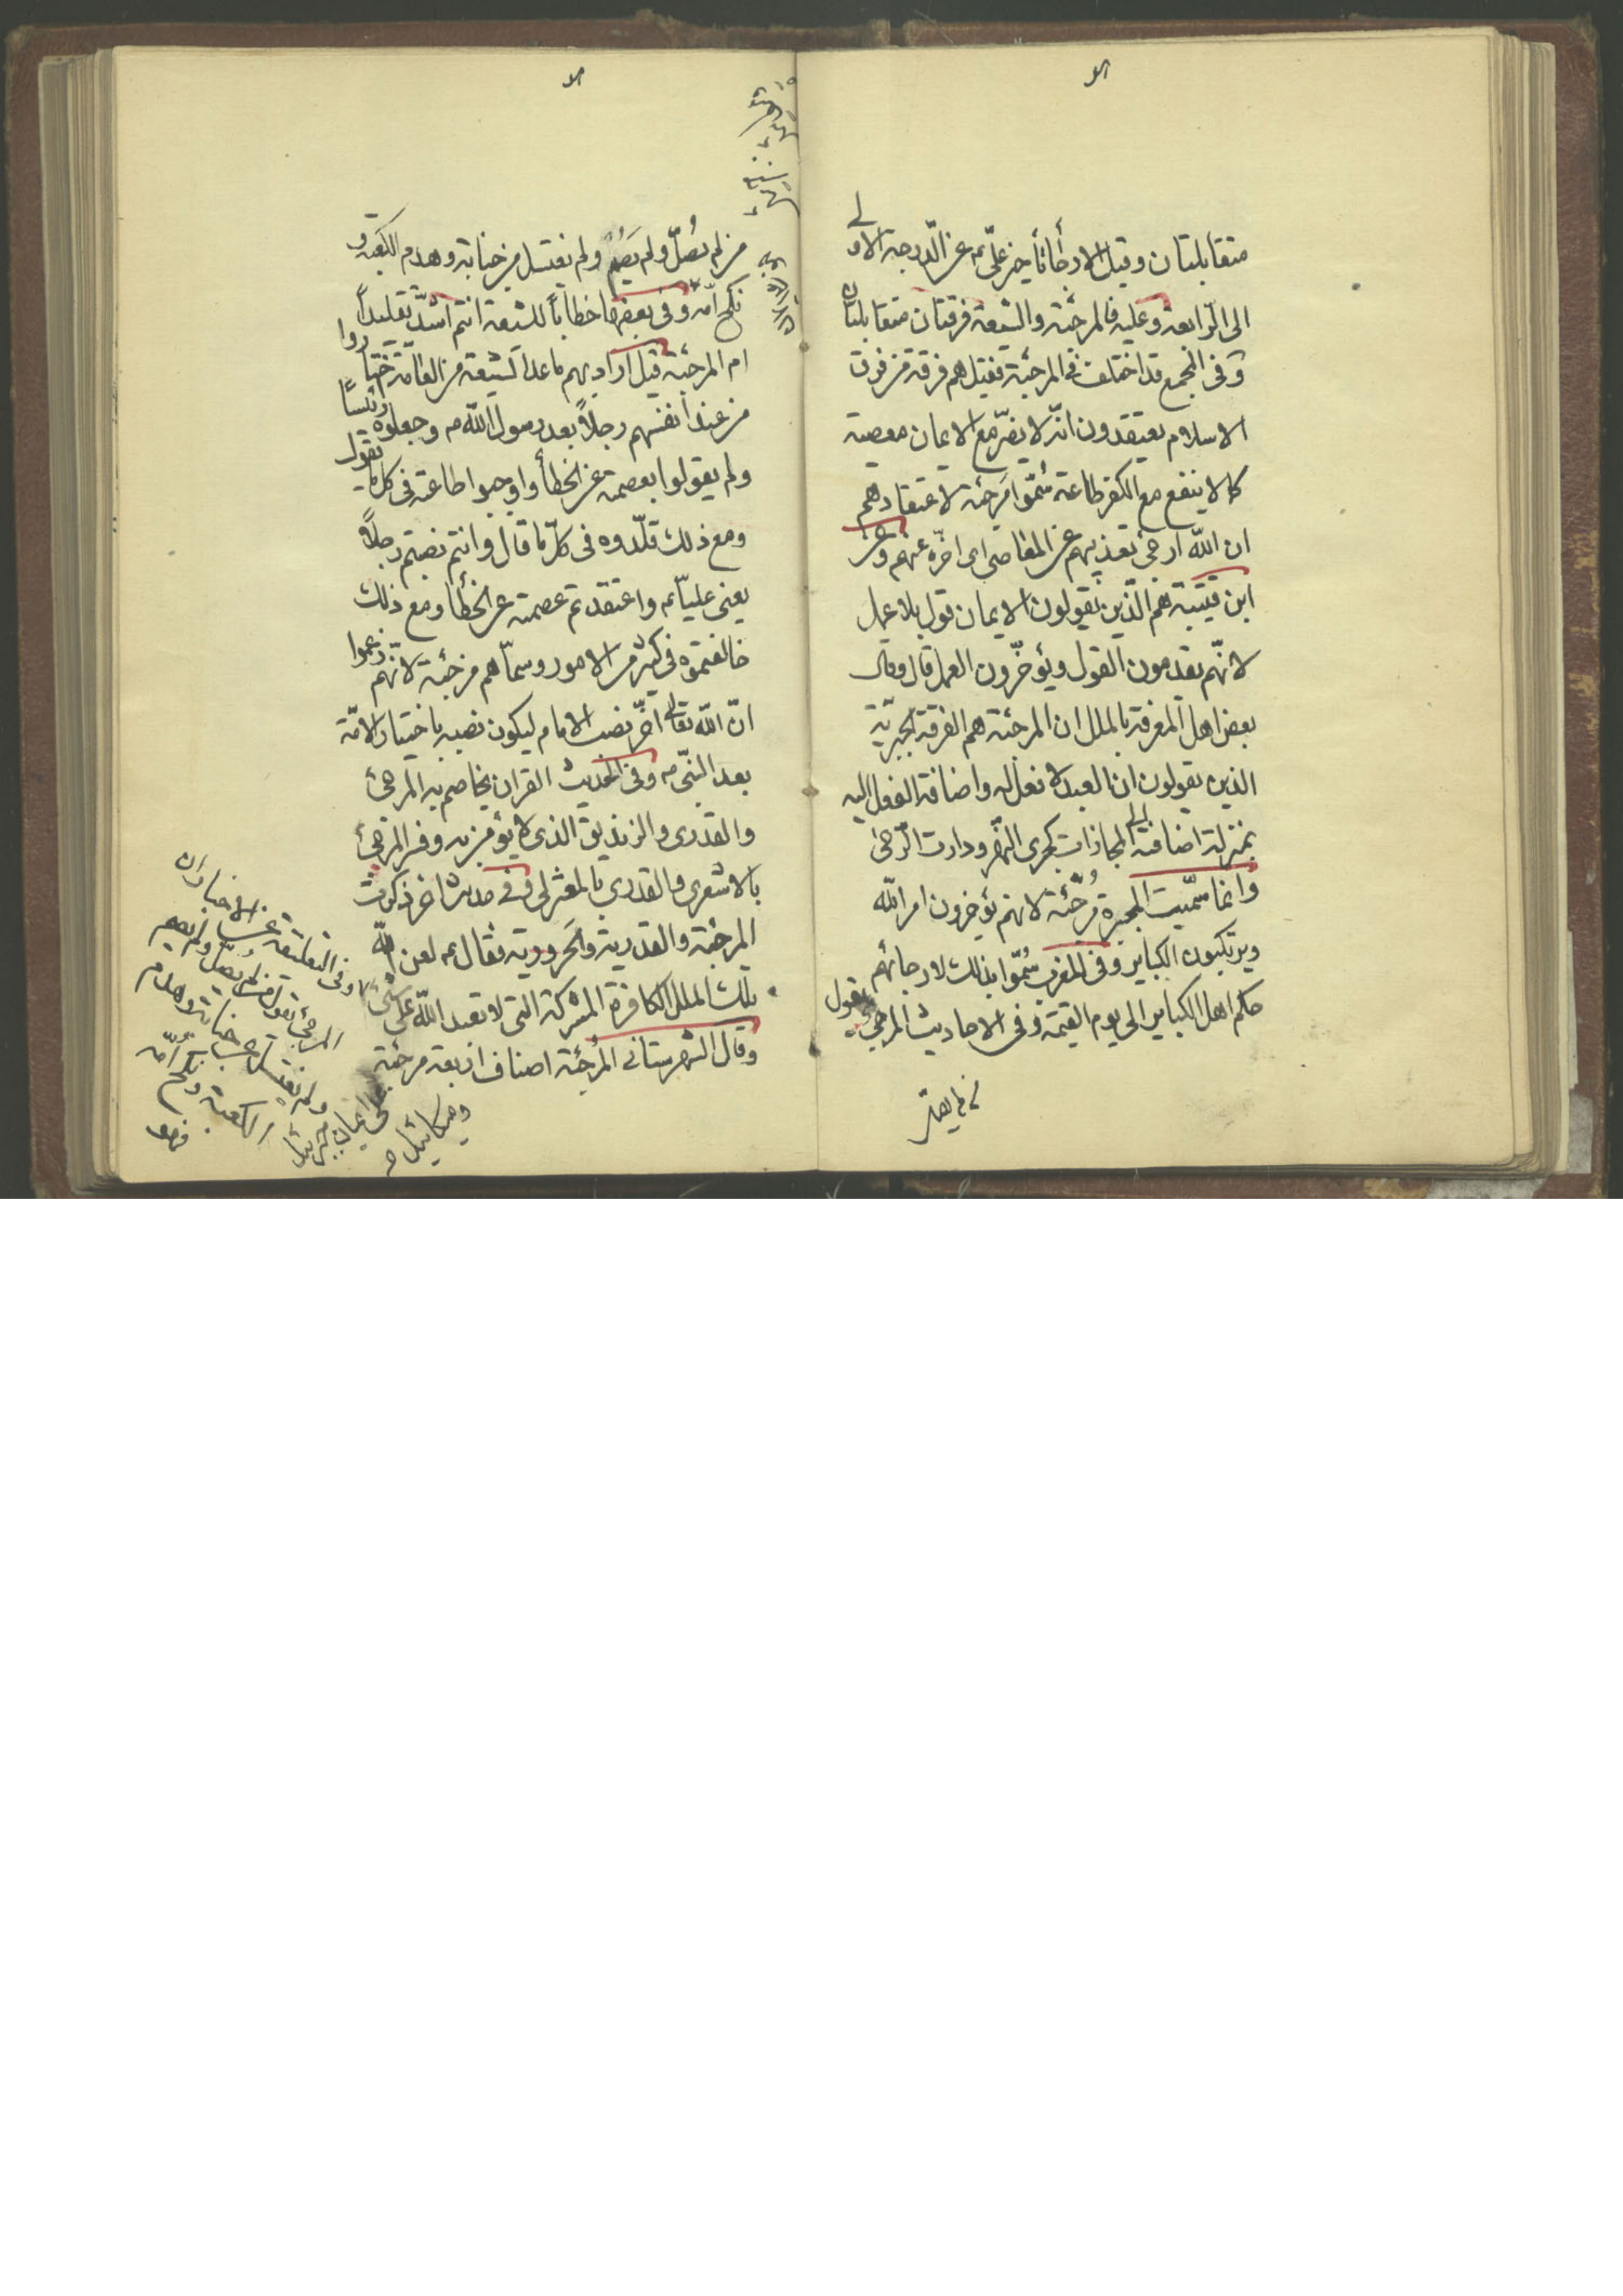 متقابلتان وقيل الارجاء تأخير علىّ عم عن الدّرجة الاولى
الى الرّابعة وعليه فالمرجئة والشيعة فرقتان متقابلتان
وفى المجمع قد اختلف فى المرجئة فقيل هم فرقة من فرق
الاسلام يعتقدون انّه لا يضرّ مع الايمان معصية
كما لا ينفع مع الكفر طاعة سُمّوا مرجئة لاعتقادهم
ان اللّه ارجى تعذيبهم عن المعاصى اى اخّره عنهم وعن
ابن قتيبة هم الّذين يقولون الايمان قول بلا عمل
لانّهم يقدمون القول ويؤخّرون العمل قال وقال
بعض اهل المعرفة بالملل ان المرجئة هم الفرقة الجبريّة
الذين يقولون ان العبد لا فعل له واضافة الفعل اليه
بمنزلة اضافته الى المجازات كجرى النّهر ودارت الرّحى
وانما سمّيت المجبرة مُرجئة لانهم يؤخرون امر اللّه
ويرتكبون الكباير وفى المغرب سُمّوا بذلك لارجائهم
حكم اهل الكباير الى يوم القيمة وفى الاحاديث المرجئ يقول
من لم يصلّ
من لم يُصلّ ولم يَصُم ولم يغتسل من جنابة وهدم الكعبة و
نكح امّه وفى بعضها خطاباً للشيعة انتم اشدّ تقليداً
ام المرجئة قيل اراد بهم ما عدا الشيعة من العامّة اختاروا
من عند انفسهم رجلاً بعد رسول اللّه ص وجعلوه رئيساً
ولم يقولوا بعصمته عن الخطأ واوجبوا طاعته فى كل ما يقول
ومع ذلك قلّدوه فى كلّ ما قال وانتم نصبتم رجلاً
يعنى عليّاً عم واعتقدتم عصمته عن الخطأ ومع ذلك
خالفتموه فى كثير من الامور وسمّاهم مرجئة لانّهم زعموا
انّ اللّه تعالى اخّر نصب الامام ليكون نصبه باختيار الامّة
بعد النبّى ص وفى الحديث القران يخاصم به المرجئ
والقدرى والزنديق الذى لا يؤمن به وفسر المرجئ
بالاشعرى والقدرى بالمعتزلى وفى حديث اخر ذكرت
المرجئة والقدرية والحرورية فقال عم لعن اللّه
تلك الملل الكافرة المشركة التى لا تعبد اللّه على شئ
وقال الشهرستانى المُرجئة اصناف اربعة مرجئة
وفى التعليقة عن الاخبار ان
المرجئ يقول من لم يصلّ ولم يصم
ولم يغتسل من جنابة وهدم
الكعبة ونكح امّه
فهو على ايمان جبرئيل
وميكائيل